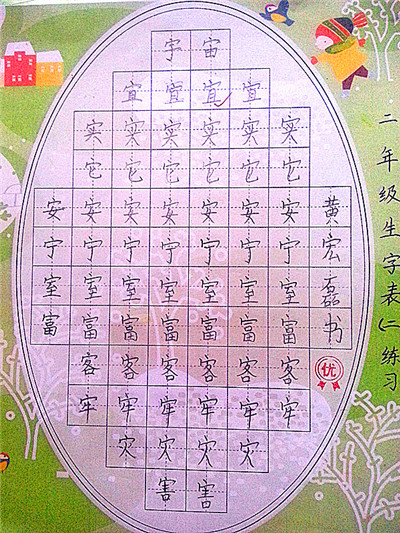 宇宙
宜宜宜宜
实实实实实实
它它它它它它
安安安安安安安黄
宁宁宁宁宁宁宁宏
室室室室室室室磊
富富富富富富富书
客客客客客客
牢牢牢牢牢牢
灾灾灾灾
害害
优
二年级生字表(二练习